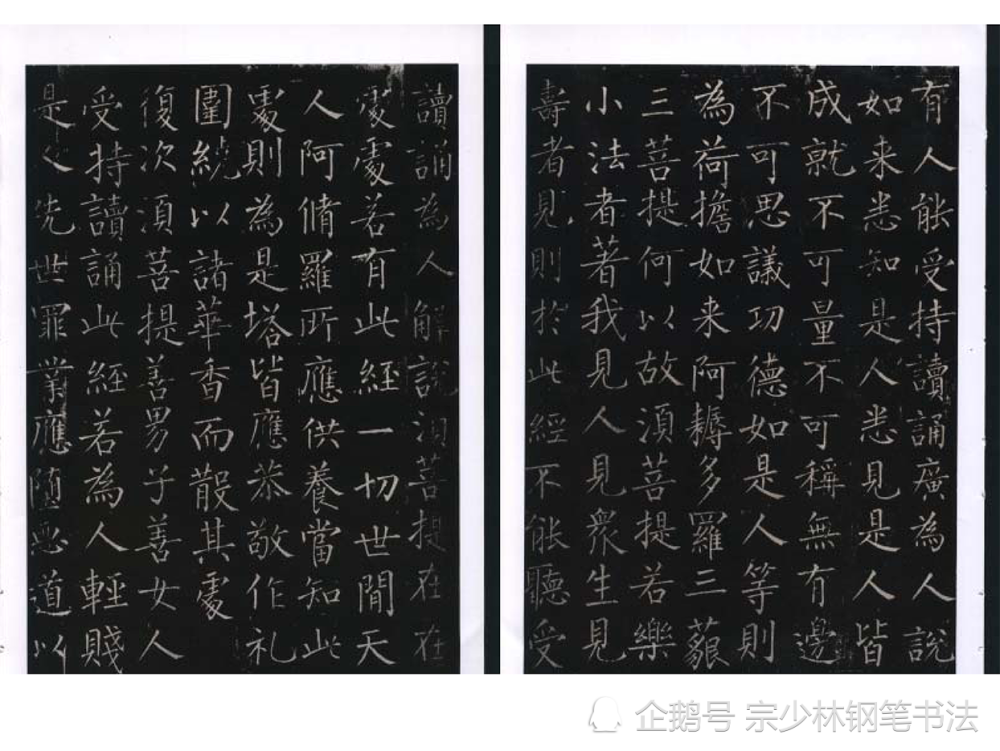 有人能受持讀誦廣為人說
如来悉知是人悉見是人皆
成就不可量不可稱無有邊
不可思議功德如是人等則
為荷擔如来阿耨多羅三藐
三菩提何以故須菩提若樂
小法者著我見人見衆生見
壽者見則於此經不能聽受
讀誦為人解說須菩提在在
處處若有此經一切世間天
人阿脩羅所應供養當知此
處則為是塔皆應恭敬作礼
圍繞以諸華香而散其處
復次須菩提善男子善女人
受持讀誦此經若為人輕賤
是人先世罪業應墮惡道以
企鹅号 宗少林钢笔书法